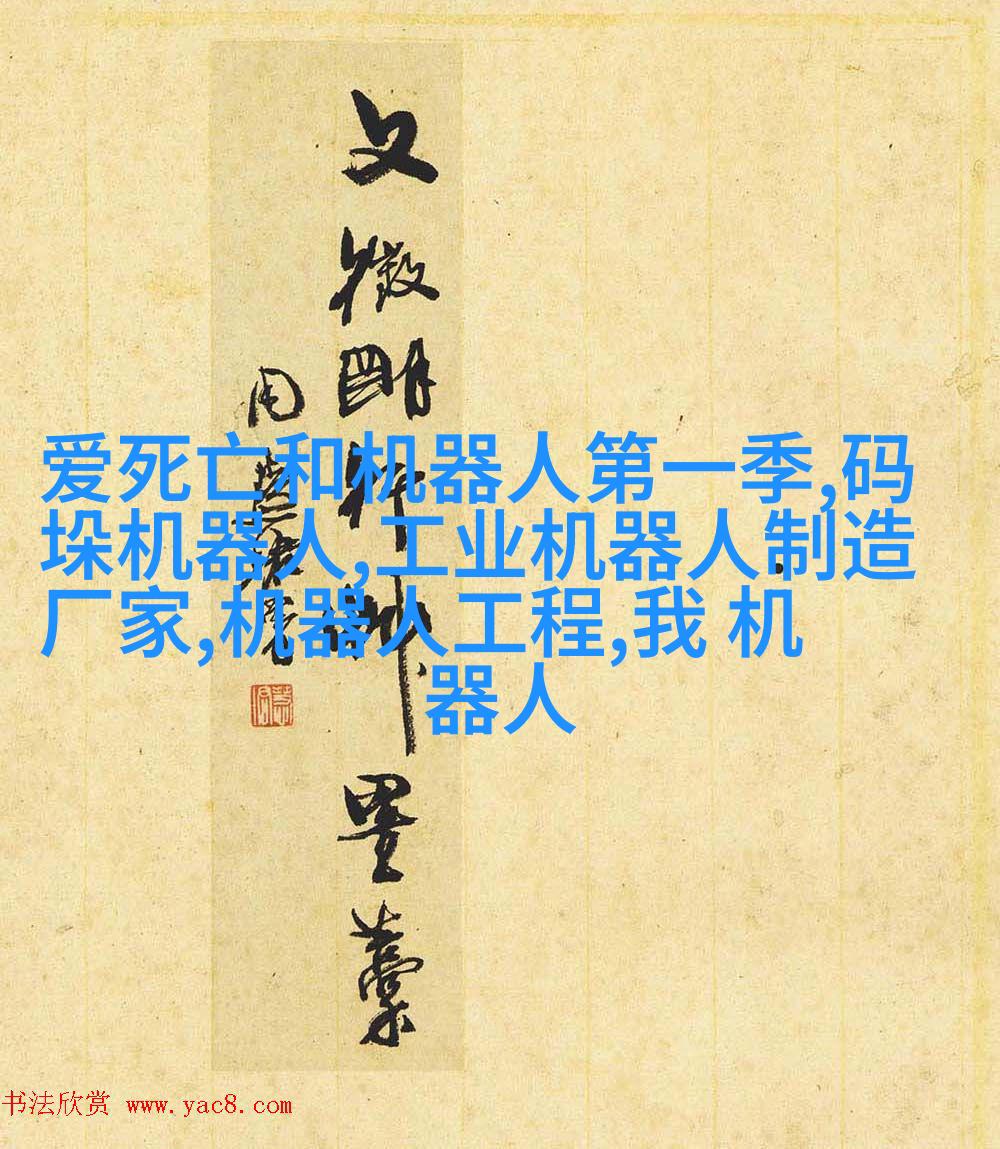 文徵明行艸墨藁
周慧珺
爱死亡和机器人第一季,码
垛机器人,工业机器人制造
厂家,机器人工程,我 机
器人
书法欣赏 www.yac8.com